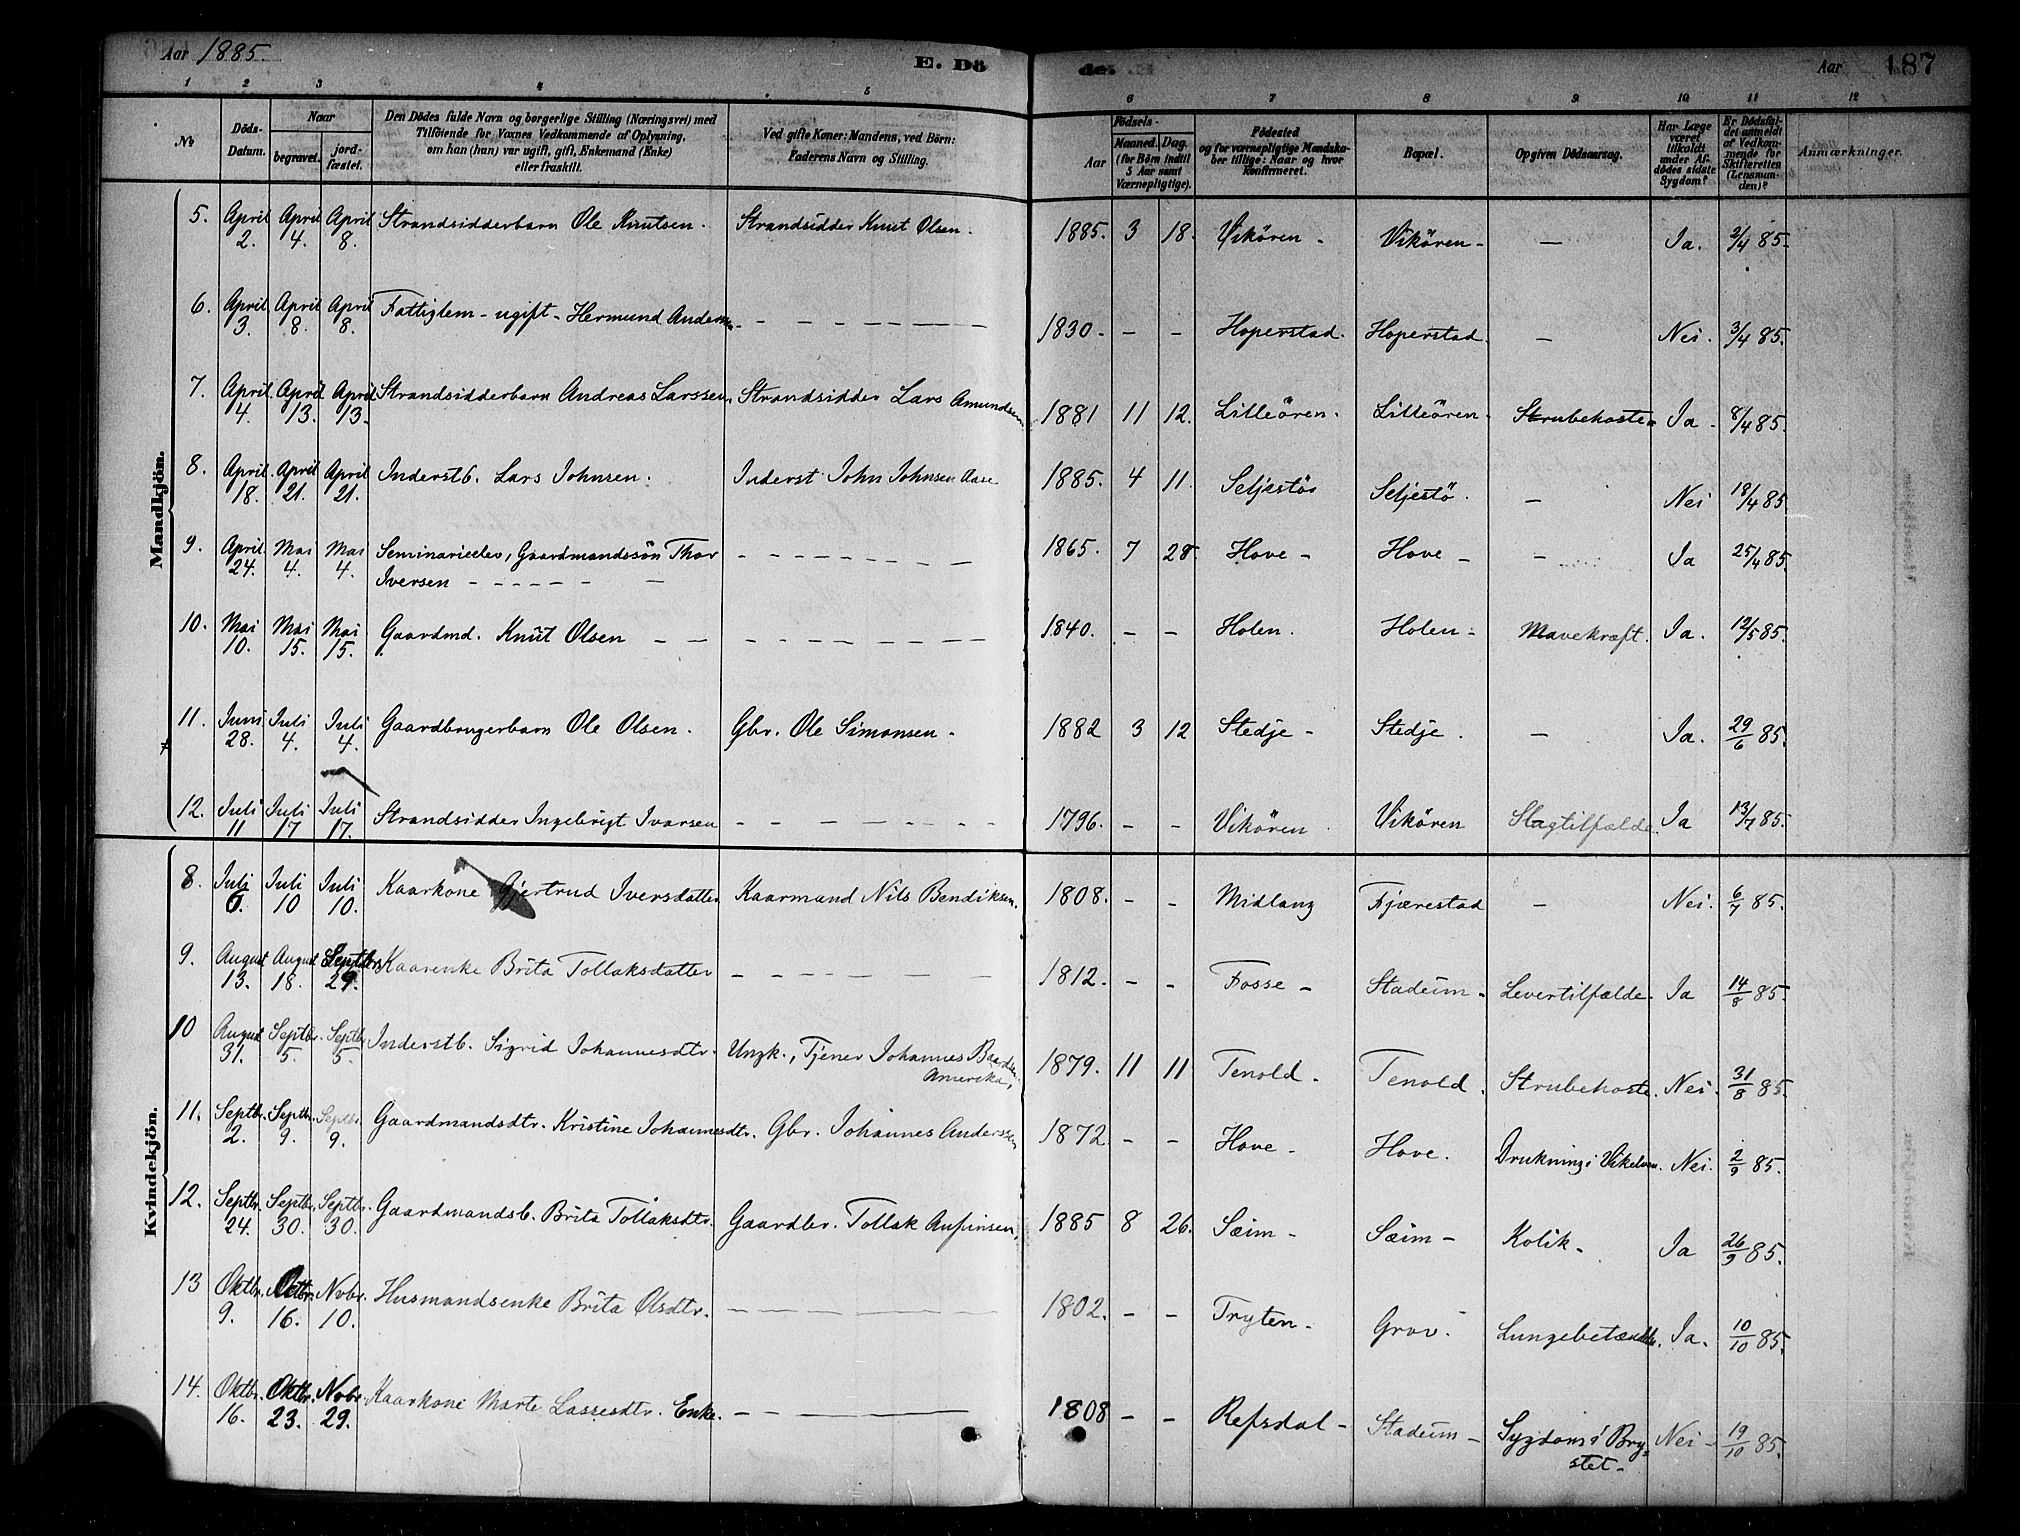 Aar 1885.
E. Dö
de.
Aar 187
1 2 3 4 5 6 7 8 9 10 11 12
№
Döds-Datum.
Naar
begravet.
jord-fæstet.
Den Dödes fulde Navn og borgerlige Stilling (Næringsvei) med
Tilföiende for Voxnes Vedkommende af Oplysning,
om han (hun) var ugift, gift, Enkemand (Enke)
eller fraskilt.
Ved gifte Koner: Mandens, ved Börn:
Faderens Navn og Stilling.
Födsels-
Aar
Maaned. Dag.
(for Börn indtil
5 Aar samt
Værnepligtige).
Födested
og for værnepligtige Mandska-
ber tillige: Naar og hvor
konfirmeret.
Bopæl.
Opgiven Dödsaarsag.
Har Læge
været
tilkaldt
under Af-
dödes sidste
Sygdom?
Er Dödsfal-
det anmeldt
af Vedkom-
mende for
Skifteretten
(Lensman-
den)?
Anmærkninger.
Mandkjön.
5. April 2. April 4. April 8. Strandsidderbarn Ole Knutsen. Strandsidder Knut Olsen. 1885. 3 18. Vikören - Vikören - — Ja. 2/4 85.
6. April 3. April 8. April 8. Fattiglem - ugift - Hermund Andersen - — 1830. - - Hoperstad. Hoperstad. — Nei. 3/4 85.
7. April 4. April 13. April 13. Strandsidderbarn Andreas Larssen. Strandsidder Lars Amundsen 1881 11 12. Litleören. Litleören. Strubehoste Ja - 8/4 85.
8. April 18. April 21. April 21. Inderstb. Lars Johnsen. Inderst John Johnsen Aase 1885. 4 11. Seljestö Seljestö. — Nei 18/4 85.
9. April 24. Mai 4. Mai 4. Seminarieelev, Gaardmandssön Thor
Iversen — 1865. 7 28. Hove - Hove - - Ja 25/4 85.
10. Mai 10. Mai 15. Mai 15. Gaardmd. Knut Olsen — — 1840. - - Holen. Holen - Mavekræft. Ja. 12/5 85.
11. Juni 28. Juli 4. Juli 4. Gaardbrugerbarn Ole Olsen. Gbr. Ole Simonsen - 1882 3 12 Stedje - Stedje. — Ja. 29/6 85.
12. Juli 11 Juli 17 Juli 17. Strandsidder Ingebrigt Ivarsen — 1796. - - Vikören. Vikören Slagtilfælde. Ja 13/7 85.
Kvindekjön.
8. Juli 6. Juli 10 Juli 10. Kaarkone Gjertrud Iversdatter Kaarmand Nils Bendiksen. 1808. - - Midlang Fjærestad — Nei. 6/7 85.
9. August 13. August 18. Septbr. 29. Kaarenke Brita Tollaksdatter — 1812. - - Fosse - Stadeim - Levertilfælde. Ja 14/8 85.
10 August 31. Septbr. 5. Septbr. 5. Inderstb. Sigrid Johannesdtr. Ungk., Tjener Johannes Baardsen
Amerika, 1879. 11 11 Tenold. Tenold. Strubehoste. Nei. 31/8 85.
11. Septbr. 2. Septbr. 9. Septbr. 9. Gaardmandsdtr. Kristine Johannesdtr. Gbr. Johannes Anderssen 1872 - - Hove - Hove. Drukning i Vikelven. Nei. 2/9 85.
12. Septbr. 24. Septbr. 30. Septbr. 30. Gaardmandsb. Brita Tollaksdtr. Gaardbr. Tollak Anfinsen, 1885 8 26. Sæim - Sæim - Kolik - Ja 26/9 85.
13 Oktbr. 9. Oktbr. 16. Nvbr. 10. Husmandsenke Brita Olsdtr. — 1802. - - Tryten. Grov. Lungebetændelse. Ja. 10/10 85.
14. Oktbr. 16. Oktbr. 23. Novbr. 29. Kaarkone Marte Lassesdtr. Enke. — 1808 - - Refsdal - Stadeim - Sygdom i Bry-
stet - Nei - 19/10 85.